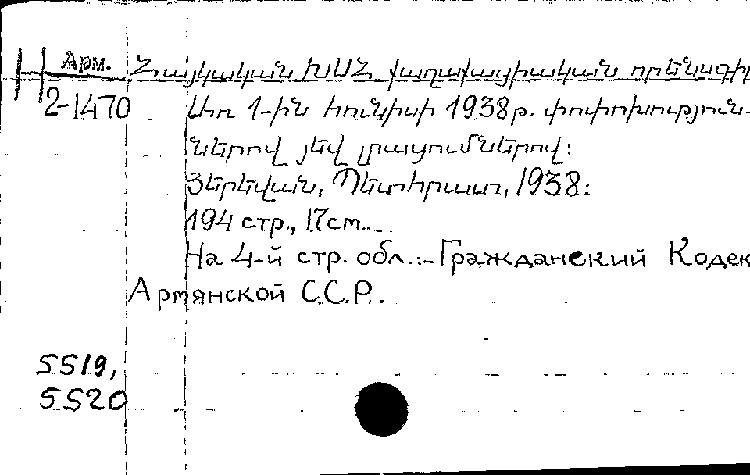 Арм. Հայկական ԽՍՀ քաղաքացիական որենսգի
2-1470 Առ 1-ին հունիսի 1938թ. փոփոխություն-
ներով յեվ լրացումներով:
Յերեվան, Պետհրատ, 1938:
194 стр., 17см.
На 4-й стр. обл.:- Гражданский Кодек
Армянской С.С.Р.
5519,
5520